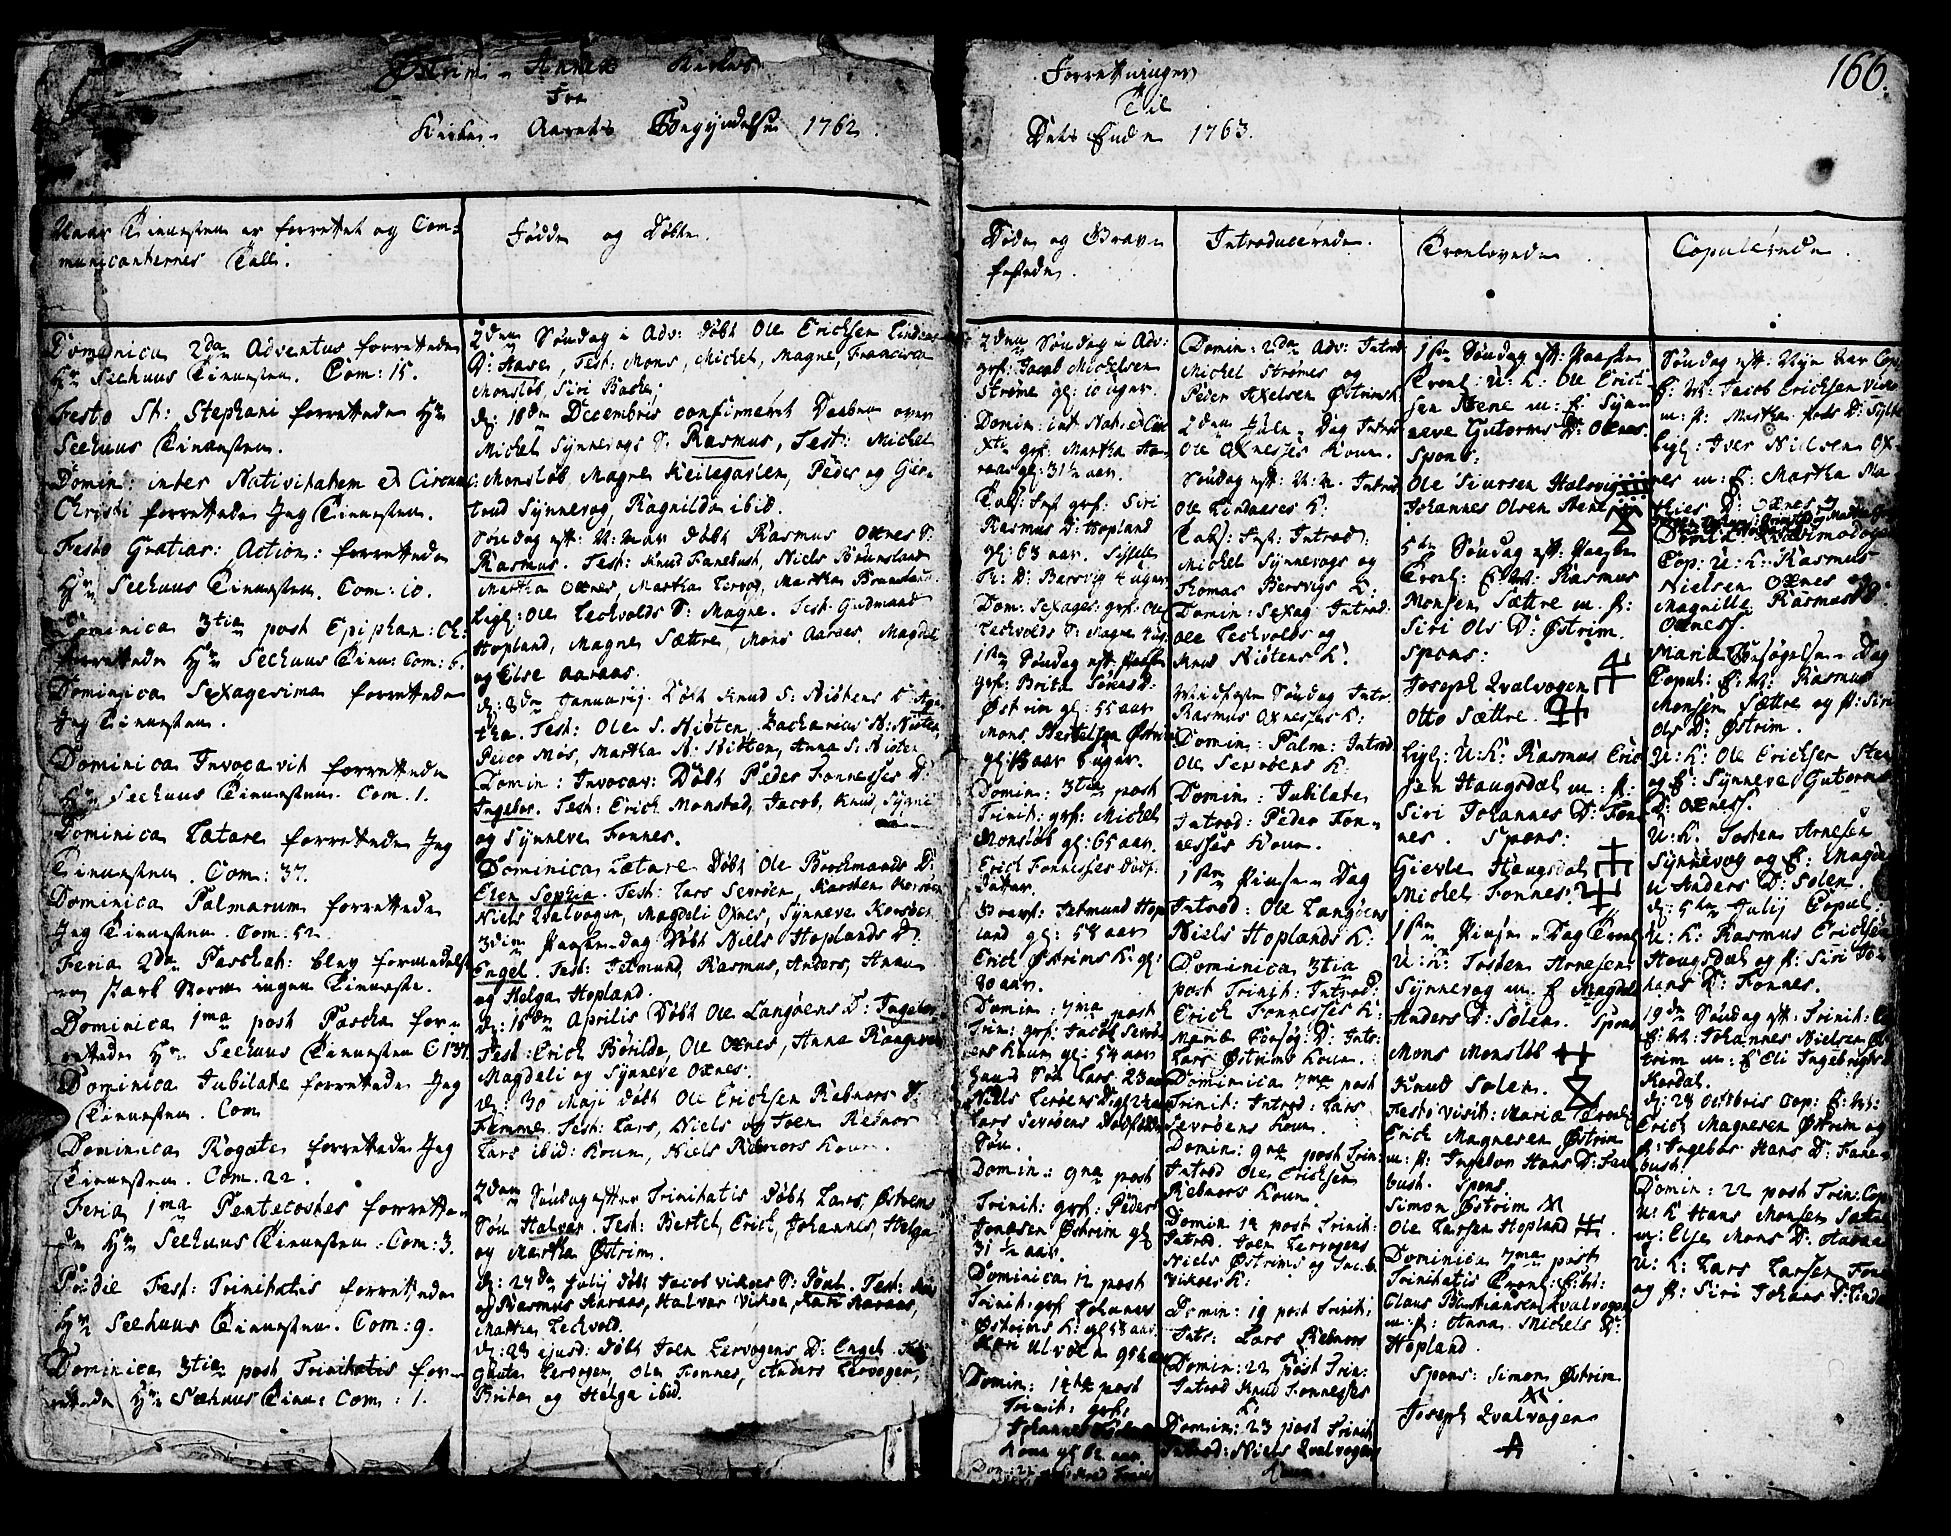 Østrim Annex Kirkes
Fra
Kirke-Aarets Begyndelse 1762.
Naar Tienesten er forrettet og Com-
municanternes Tall.
Dominica 2da Adventus forrettede
Hr Seehuus Tienesten. Com: 15.
Festo St: Stephani forrettede Hr
Seehuus Tienesten.
Domin: inter Nativitatem et Circum:
Christi forrettede Jeg Tienesten.
Festo Gratiar: Action: forrettede
Hr Seehuus Tienesten. Com: 10.
Dominica 3tia post Epiphan: Ch:
forrettede Hr Seehuus Tien: Com: 6.
Dominica Sexagesima forrettede
Jeg Tienesten.
Dominica Invocavit forrettede
Hr Seehuus Tienesten. Com. 1.
Dominica Lætare forrettede Jeg
Tienesten. Com: 37.
Dominica Palmarum forrettede
Jeg Tienesten. Com. 52.
Feria 2da Paschat: blev formedelst
en stark Storm ingen Tieneste.
Dominica 1ma post Pascha for-
rettede Hr Seehuus Tienesten C 137.
Dominica Jubilate forrettede Jeg
Tienesten. Com
Dominica Rogate forrettede Jeg
Tienesten. Com. 22.
Feria 1ma Pentecostes forrette-
de Hr Seehuus Tienesten: Com: 3.
Pridie Fest: Trinitatis forrettede
Hr Seehuus Tienesten. Com: 9.
Dominica 3tia post Trinitatis for-
rettede Hr Seehuus Tien: Com: 1.
Fødde og Døbte.
2den Søndag i Adv: Døbt Ole Erichsen Lindaas
D: Aase, Test: Mons, Michel, Magne, Francisca
Monsløb, Siri Bache;
d: 18de Decembris confirmeret Daaben over
Michel Synnevogs S: Rasmus, Test: Michel
Monsløb, Magne Keilegavlen, Peder og Gier-
trud Synnevog, Ragnilde ibid.
Søndag eft: N: Aar Døbt Rasmus Oxnes S:
Rasmus. Test: Knud Fanebust, Niels Brunsland
Martha Oxnes, Martha Lervog, Martha Brunsland.
Ligl: Ole Lechvolds S: Magne. Test: Gudmand
Hopland, Magne Sættre, Mons Aaraas, Magdeli
og Else Aaraas.
d: 8de Januarij Døbt Knud S: Niøtens D: Aga-
tha. Test: Ole S. Niøten, Zacharias N: Niøten,
Peder Mos, Martha N: Niøten, Anna S: Niøten
Domin: Invocav: Døbt Peder Fonnesses D:
Ingebor. Test: Erich Monstad, Jacob, Knud, Sygni
og Synneve Fonnes.
Dominica Lætare Døbt Ole Borchmands D:
Elen Sophia. Test: Lars Sevrøen, Karsten Korsøen
Niels Qvalvogen, Magdeli Oxnes, Synneve Korsøen
3die Paaske-Dag Døbt Niels Hoplands D:
Engel. Test: Jetmund, Rasmus, Anders, Anna
og Helga Hopland.
d: 15de Aprilis Døbt Ole Langøens D: Ingebor.
Test: Erich Børilde, Ole Oxnes, Anna Rangøen
Magdeli og Synneve Oxnes.
d: 30 Maji Døbt Ole Erichsen Rebnors S:
Femme. Test: Lars, Niels og Joen Rebnor
Lars ibid: Kone, Niels Rebnors Kone.
2den Søndag efter Trinitatis Døbt Lars Østrems
Søn Halvor. Test: Bertel, Erich, Johannes, Helga
og Martha Østrim.
d: 27de Julij Døbt Jacob Vikøes S: Poul. Test:
og Rasmus Aaraas, Halvor Vikøe, Kari Aaraas,
Martha Lechvold.
d: 28 ejusd: Døbt Joen Lervogens D: Engel. Test:
Lervogen, Ole Fonnes, Anders Lervogen,
Brita og Helga ibid.
166.
Forretninger
Til
Dets Ende 1763.
Døde og Grav-
festede.
2den Søndag i Adv:
grf: Jacob Michelsen
Strøme gl: 10 uger.
Domin: int Nat: et Cir
grf: Martha Aa-
raas gl: 31½ aar.
Sept: grf: Siri
Rasmus D: Hopland
gl: 63 aar. Sissele
D: Barsvig 4 uger
Dom: Sexages: grf: Ole
Lechvolds S: Magne 4 ug.
1ste Søndag eft: Paaske
grf: Brita Sørens D:
Østrim gl: 55 aar
Mons Bertelsen Østrim
gl: aar uger.
Domin: 3tia post
Trinit: grf: Michel
Monsløb gl: 65 aar.
Erich Fonnesses Dødf:
Datter.
Gravf: Jetmund Hop
land gl: 58 aar
Erich Østrims K: gl:
80 aar.
Domin: 7ma post
Trin: grf: Jacob Sevrø-
ens Kone gl: 54 aar
hans Søn Lars 23 aar
Niels Lerøens D: gl
Lars Sevrøens Dødfødde
Søn.
Domin: 9na post
Trinit: grf: Peder
Jonesen Østrim gl
31½ aar.
Dominica 12 post
Trinit: grf: Johannes
Østrims K: gl 58 aar.
Ulvøen
Domin: 14de post
Trinit: grf:
Johannes
Kone gl aar.
Introducerede.
Domin: 2da Adv: Introd
Michel Strømes og
Peder Axelsen Østrims K.
2den Jule-Dag Introd
Ole Oxneses Kone.
Søndag eft: N: A. Introd
Ole Lindaases K:
Introd:
Michel Synnevogs og
Thomas Bersvigs K:
Domin: Sexag: Introd:
Ole Lechvolds og
Knud Niøtens K.
Midfaste Søndag Intr:
Rasmus Oxnesses K:
Domin: Palm: Introd
Ole Sevrøens K.
Domin: Jubilate
Introd: Peder Fon-
nesses Kone.
1ste Pinse-Dag
Introd: Ole Langøens
Niels Hoplands K:
Dominica 3tia
post Trinit: Introd:
Erich Fonnesses K:
Mariæ Besøg: D: Intr:
Lars Østrims Kone.
Dominica 7ma post
Trinit: Introd: Lars
Sevrøens Kone.
Domin: 9na post Trin:
Introd Ole Erichsen
Rebnors Kone
Domin 14 post Trinit:
Introd. Joen Lervogens
Niels Østrims og Jacob
Vikøes K:
Domin: 19 post Trinit:
Intr: Lars Rebnors
Domin: 22 post Trin:
Introd Knud Fonnesses
K:
Domin: 23 post Trinit
Introd: Niels Qvalvogens
Kone
Troelovede
1ste Søndag eft: Paaske
Troel: U: K: Ole Erich-
sen Stene m: P: Syn-
neve Gutorms D: Oxnes.
Spons:
Ole Siursen Halsvig
Johannes Olsen Stene
5te Søndag eft: Paaske
Troel: E: M: Rasmus
Monsen Sættre m: P:
Siri Ols D: Østrim.
Spons:
Joseph Qvalvogen
Otto Sættre.
Ligl: U: K: Rasmus Erich-
sen Haugsdal m: P:
Siri Johannes D: Fon-
nes. Spons:
Gievle Haugsdal
Michel Fonnes.
1ste Pinse-Dag Troel
U: K: Tosten Arnesen
Synnevog m: P Magdeli
Anders D: Solem. Spons
Mons Monsløb
Knud Solem.
Festo visit: Mariæ Troel:
Erich Magnesen Østrim
m: P: Ingebor Hans D: Fane-
bust. Spons
Simon Østrim
Ole Larsen Hopland
Dominica 7ma post
Trinitatis Troel:
Claus Bastiansen Qvalvogen
m: P: Anna Michels D:
Hopland.
Spons: Simon Østrim
Joseph Qvalvogen
Copulerede
Søndag eft: Nyt Aar Cop
E: M: Jacob Erichsen Vikøe
m: P: Martha Peds D:
Ligl: Iver Nielsen Ox-
nes m: P: Martha Ma-
thies D: Oxnes
Quasimodogen
Cop: U: K: Rasmus
Nielsen Oxnes og
Magnille Rasmus D:
Oxness.
Maria Besøgelse-Dag
Copul: E: M: Rasmus
Monsen Sættre og P: Siri
Ols D: Østrim.
U: K: Ole Erichsen Stene
og P: Synneve Gutorms
D: Oxness.
U: K: Tosten Arnesen
Synnevog og P: Magde-
li Anders D: Solem.
d: 5te Julij Copul:
U: K: Rasmus Erichsen
Haugsdal og P: Siri Jo-
hans D: Fonnes.
19de Søndag eft: Trinit: C
Johannes Nielsen Øs-
trim m: P Eli Ingebrigts
Kardal.
d: 28 Octobris Cop: E: M:
Erich Magnesen Østrim og
P: Ingebor Hans D: Fane-
bust.
Domin: 22 post Trin: Cop
U: K Hans Monsen Sættre
m: Else Mons D: Aaraas
U: K: Lars Larsen Fonnes
og P: Siri Johans D: Lindaas